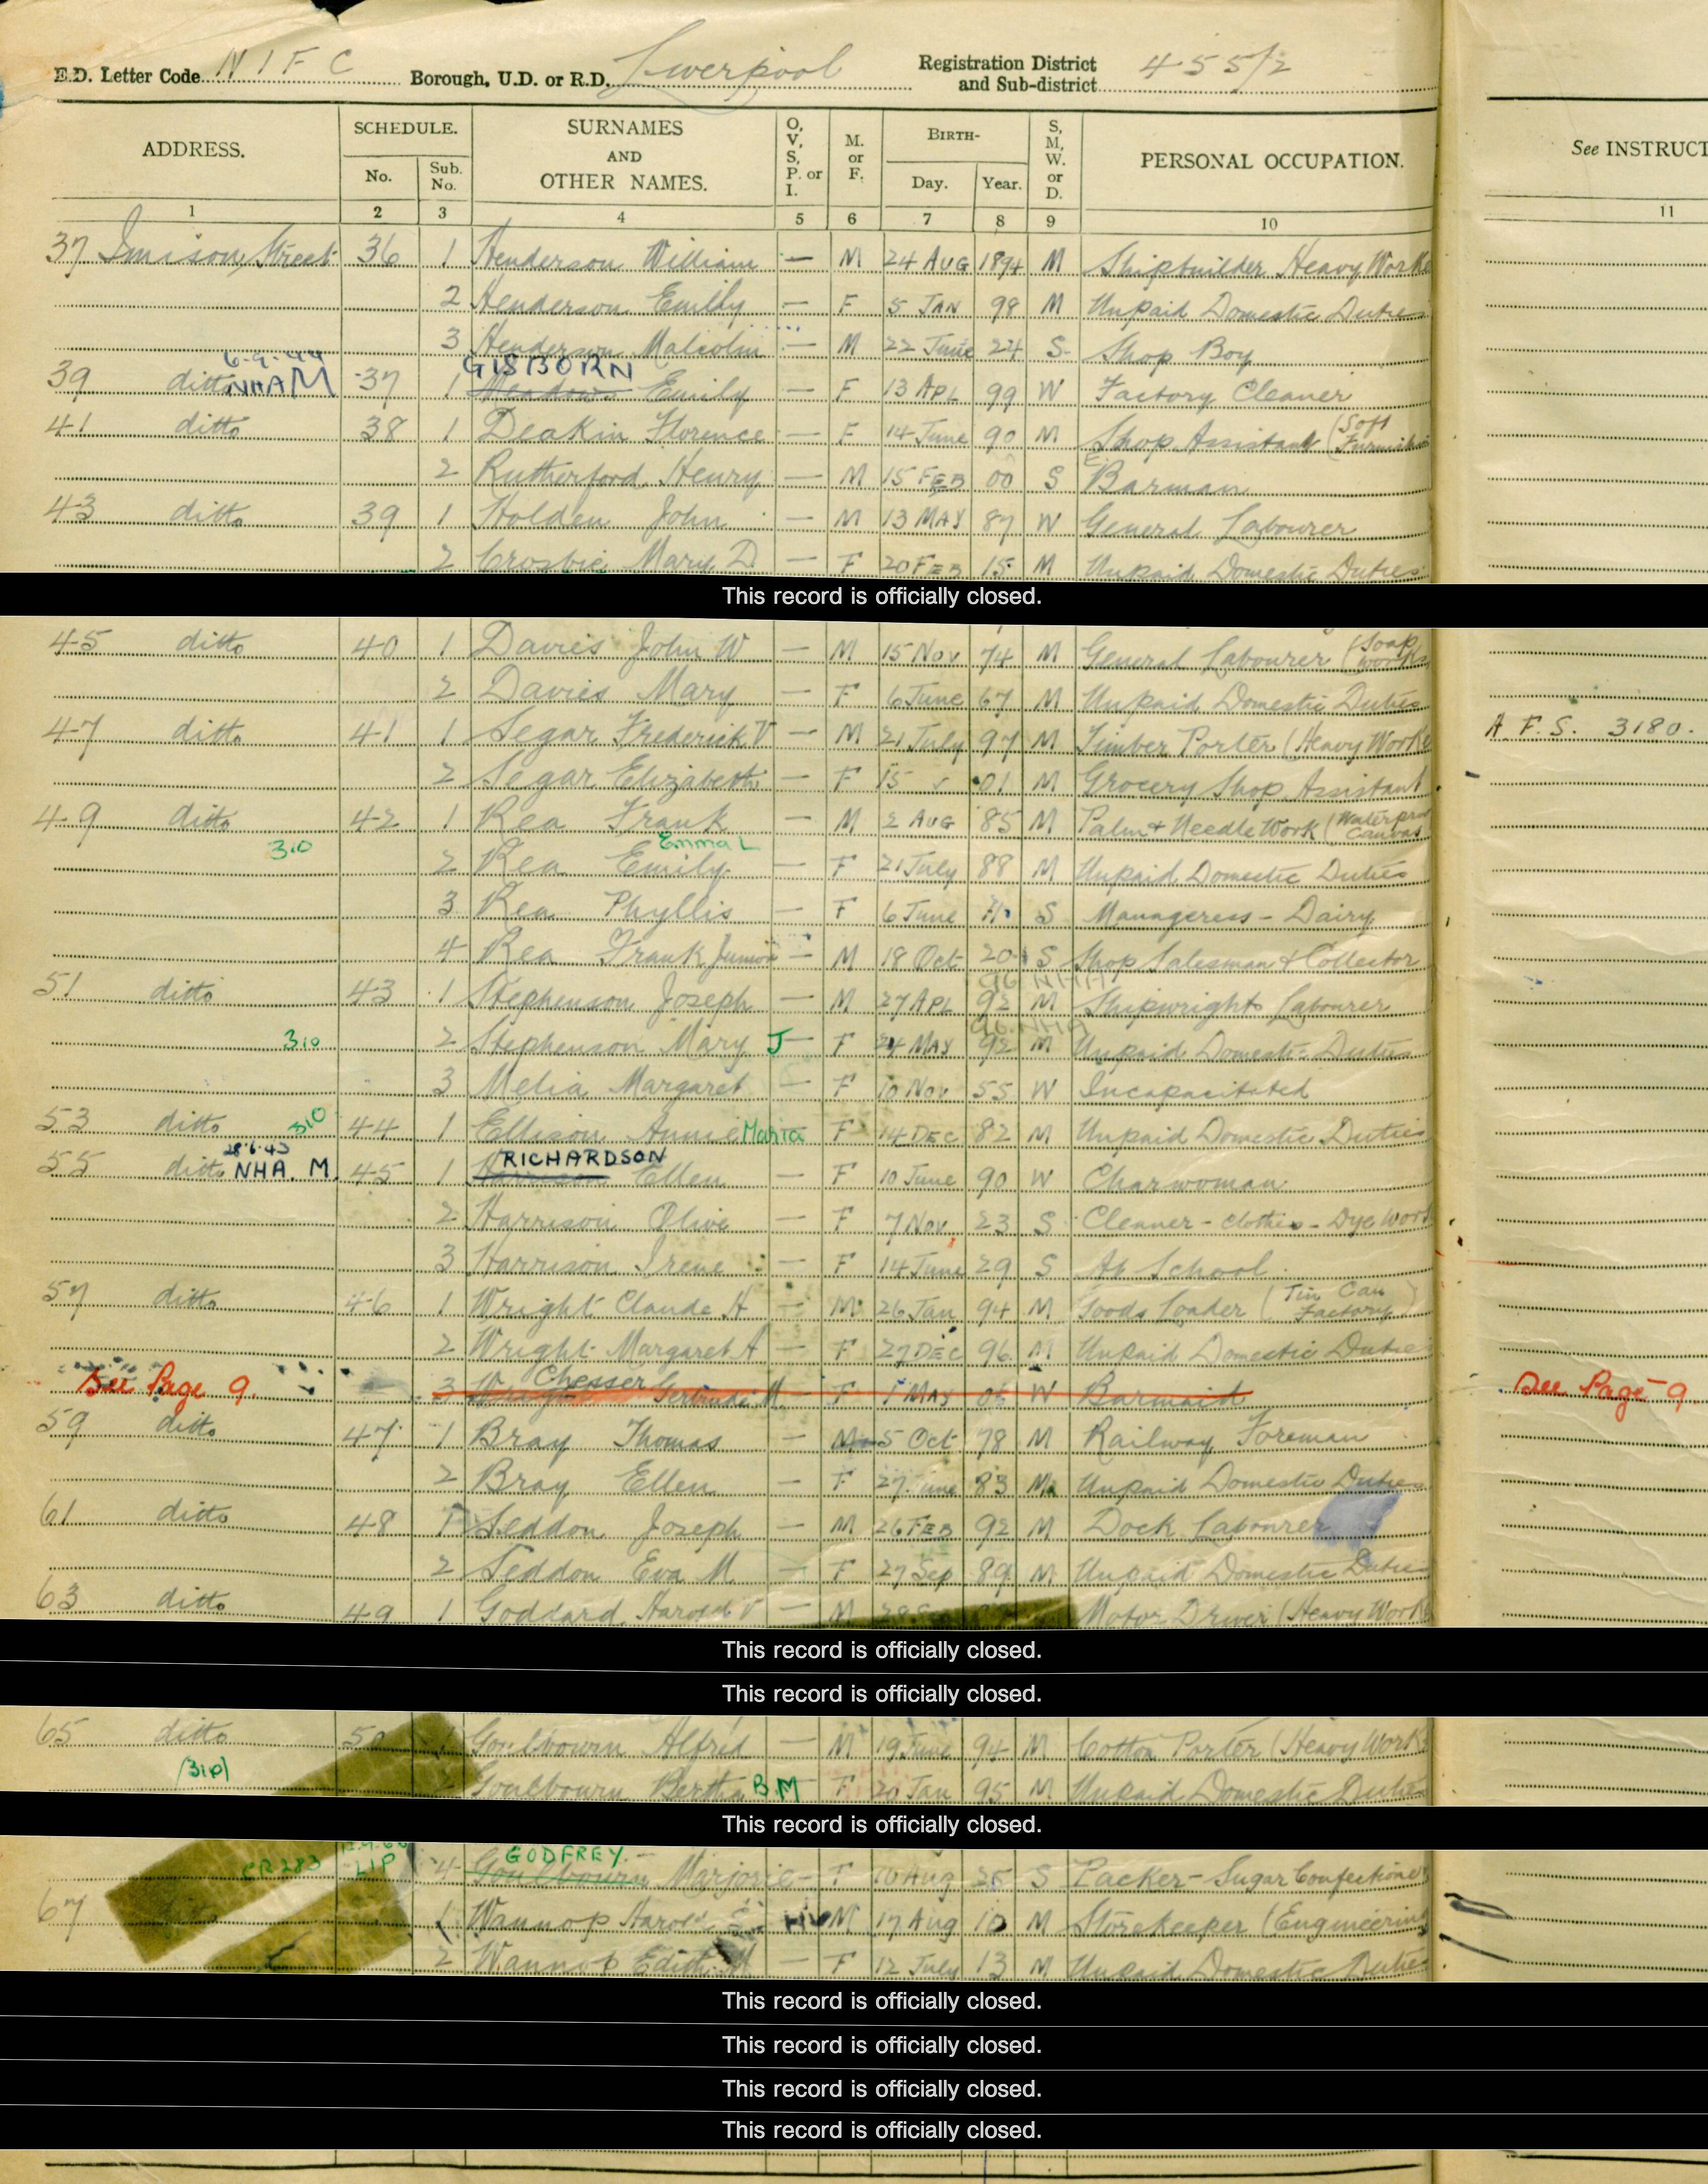 E.D. Letter Code N I F C Borough, U.D. or R.D. Liverpool Registration District and Sub-district 455/2
ADDRESS. SCHEDULE. No. Sub. No. SURNAMES AND OTHER NAMES. O, V, S, P. or I. M. or F. BIRTH- Day. Year. S, M, W. or D. PERSONAL OCCUPATION. See INSTRUCT
1 2 3 4 5 6 7 8 9 10 11
37 Imison Street 36 1 Henderson William — M 24 AUG 1894 M Shipbuilder Heavy Worke
2 Henderson Emily — F 5 JAN 98 M Unpaid Domestic Duties
3 Henderson Malcolm — M 22 June 24 S Shop Boy
6.9.44 GISBORN
39 ditto NHA M 37 1 Emily — F 13 APL 99 W Factory Cleaner
41 ditto 38 1 Deakin Florence — F 14 June 90 M Shop Assistant (Soft
2 Rutherford Henry — M 15 FEB 00 S Barman
43 ditto 39 1 Holden John — M 13 MAY 87 W General Labourer
2 Crosbie Mary D — F 20 FEB 15 M Unpaid Domestic Duties
This record is officially closed.
45 ditto 40 1 Davies John W — M 15 Nov 74 M General Labourer (Soap Works
2 Davies Mary — F 6 June 67 M Unpaid Domestic Duties
47 ditto 41 1 Segar Frederick V — M 21 July 97 M Timber Porter (Heavy Worke A.F.S. 3180.
2 Segar Elizabeth — F 15 01 M Grocery Shop Assistant
49 ditto 42 1 Rea Frank — M 2 AUG 85 M Palm + Needle Work (Waterproo Canvas
310 Emma L
2 Rea Emily — F 21 July 88 M Unpaid Domestic Duties
3 Rea Phyllis — F 6 June 11 S Manageress - Dairy
4 Rea Frank Junior — M 18 Oct 20 S Shop Salesman & Collector
96 NHA
51 ditto 43 1 Stephenson Joseph — M 27 APL 92 M Shipwrights Labourer
96 NHA
310 2 Stephenson Mary J — F 24 MAY 92 M Unpaid Domestic Duties
3 Melia Margaret — F 10 Nov 55 W Incapacitated
53 ditto 310 44 1 Ellison Annie Maria F 14 DEC 82 M Unpaid Domestic Duties
28.6.43 RICHARDSON
55 ditto NHA. M 45 1 Harrison Ellen — F 10 June 90 W Charwoman
2 Harrison Olive — F 7 Nov 23 S Cleaner - clothes - Dye Work
3 Harrison Irene — F 14 June 29 S At School
57 ditto 46 1 Wright Claude H — M 26 Jan 94 M Goods Loader (Tin Can Factory)
2 Wright Margaret A — F 27 DEC 96 M Unpaid Domestic Duties
Chesser
See Page 9. 3 Gertrude M. — F 1 MAY 05 W Barmaid See Page 9
59 ditto 47 1 Bray Thomas — M 5 Oct 78 M Railway Foreman
2 Bray Ellen — F 27 June 83 M Unpaid Domestic Duties
61 ditto 48 1 Seddon Joseph — M 26 FEB 92 M Dock Labourer
2 Seddon Eva M. — F 27 Sep 89 M Unpaid Domestic Duties
63 ditto 49 1 Goddard Harold V — M 28 Motor Driver (Heavy Work
This record is officially closed.
This record is officially closed.
65 ditto 50 Goulbourn Alfred — M 19 June 94 M Cotton Porter (Heavy Work
(310) Goulbourn Bertha B M F 20 Jan 95 M Unpaid Domestic Duties
This record is officially closed.
GODFREY.
CR283 LIP 4 Goulbourn Marjorie — F 10 Aug 25 S Packer - Sugar Confectionery
67 1 Wannop Harold E. M 17 Aug 10 M Storekeeper (Engineering
2 Wannop Edith M — F 12 July 13 M Unpaid Domestic Duties
This record is officially closed.
This record is officially closed.
This record is officially closed.
This record is officially closed.